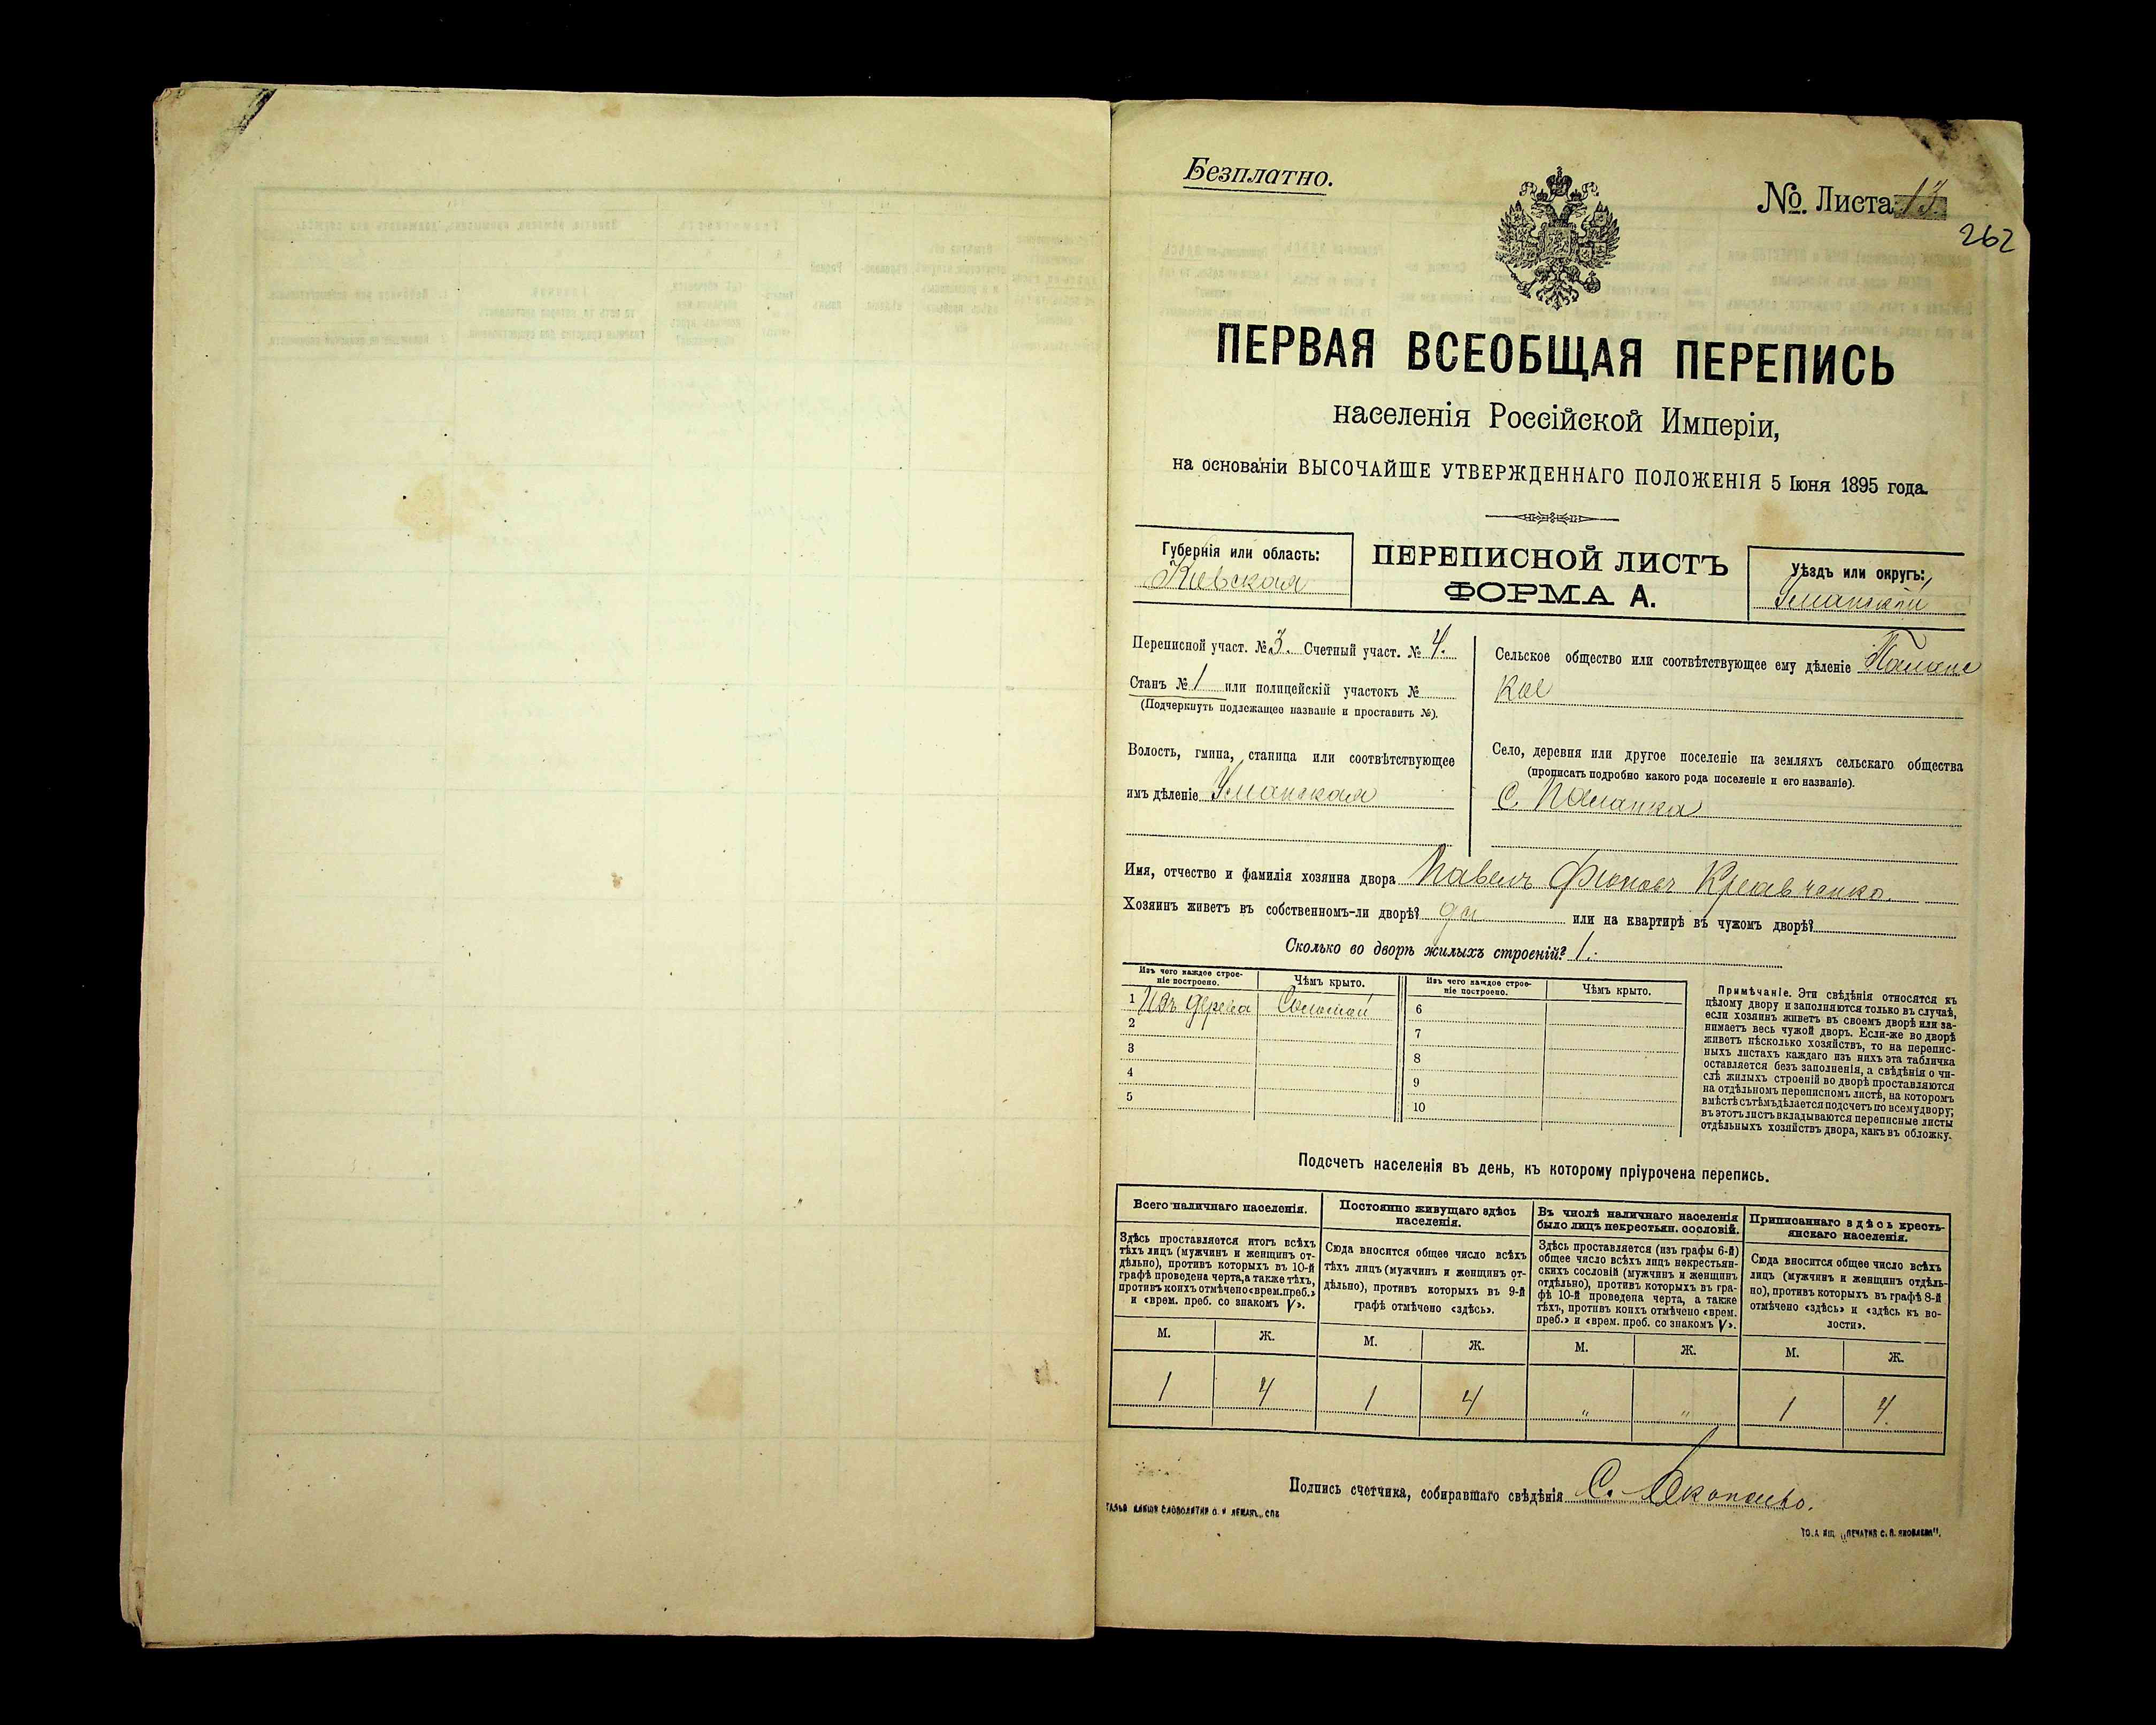 Безплатно.
№ Листа 13
262
ПЕРВАЯ ВСЕОБЩАЯ ПЕРЕПИСЬ
населенія Россійской Имперіи,
на основаніи ВЫСОЧАЙШЕ УТВЕРЖДЕННАГО ПОЛОЖЕНІЯ 5 Іюня 1895 года.
Губернія или область:
Кіевская
ПЕРЕПИСНОЙ ЛИСТЪ
ФОРМА А.
Уѣздъ или округъ:
Уманскій
Переписной участ. № 3. Счетный участ. № 4.
Станъ № 1 или полицейскій участокъ №
(Подчеркнуть подлежащее названіе и проставить №).
Волость, гмина, станица или соотвѣтствующее
имъ дѣленіе Уманская
Сельское общество или соотвѣтствующее ему дѣленіе Паланс
кое
Село, деревня или другое поселеніе на земляхъ сельскаго общества
(прописать подробно какого рода поселеніе и его названіе).
С. Паланка
Имя, отчество и фамилія хозяина двора Павелъ Кравченко.
Хозяинъ живетъ въ собственномъ-ли дворѣ? да или на квартирѣ въ чужомъ дворѣ?
Сколько во дворѣ жилыхъ строеній? 1.
Изъ чего каждое строе-
ніе построено.
Чѣмъ крыто.
Изъ чего каждое строе-
ніе построено.
Чѣмъ крыто.
1 Изъ дерева Соломой 6
2 7
3 8
4 9
5 10
Примѣчаніе. Эти свѣдѣнія относятся къ
цѣлому двору и заполняются только въ случаѣ,
если хозяинъ живетъ въ своемъ дворѣ или за-
нимаетъ весь чужой дворъ. Если-же во дворѣ
живетъ нѣсколько хозяйствъ, то на перепис-
ныхъ листахъ каждаго изъ нихъ эта табличка
оставляется безъ заполненія, а свѣдѣнія о чи-
слѣ жилыхъ строеній во дворѣ проставляются
на отдѣльномъ переписномъ листѣ, на которомъ
вмѣстѣ съ тѣмъ дѣлается подсчетъ по всему двору;
въ этотъ листъ вкладываются переписные листы
отдѣльныхъ хозяйствъ двора, какъ въ обложку.
Подсчетъ населенія въ день, къ которому пріурочена перепись.
Всего наличнаго населенія.
Здѣсь проставляется итогъ всѣхъ
тѣхъ лицъ (мужчинъ и женщинъ от-
дѣльно), противъ которыхъ въ 10-й
графѣ проведена черта, а также тѣхъ,
противъ коихъ отмѣчено «врем. преб.»
и «врем. преб. со знакомъ V».
Постоянно живущаго здѣсь
населенія.
Сюда вносится общее число всѣхъ
тѣхъ лицъ (мужчинъ и женщинъ от-
дѣльно), противъ которыхъ въ 9-й
графѣ отмѣчено «здѣсь».
Въ числѣ наличнаго населенія
было лицъ некрестьян. сословій.
Здѣсь проставляется (изъ графы 6-й)
общее число всѣхъ лицъ некрестьян-
скихъ сословій (мужчинъ и женщинъ
отдѣльно), противъ которыхъ въ гра-
фѣ 10-й проведена черта, а также
тѣхъ, противъ коихъ отмѣчено «врем.
преб.» и «врем. преб. со знакомъ V».
Приписаннаго здѣсь кресть-
янскаго населенія.
Сюда вносится общее число всѣхъ
лицъ (мужчинъ и женщинъ отдѣль-
но), противъ которыхъ въ графѣ 8-й
отмѣчено «здѣсь» и «здѣсь къ во-
лости».
М. Ж. М. Ж. М. Ж. М. Ж.
1 4 1 4 " " 1 4.
Подпись счетчика, собиравшаго свѣдѣнія С.